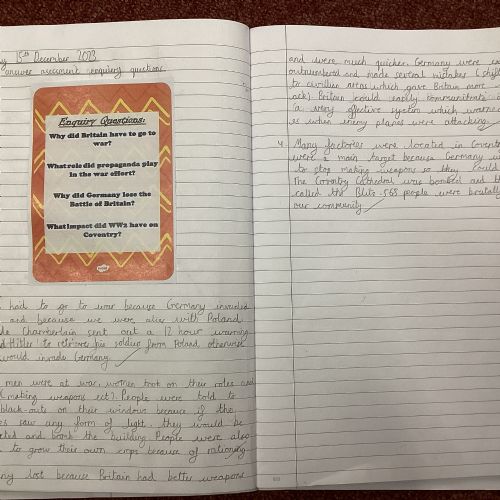 15th December 2023
answer assessment enquiry questions.
Enquiry Questions:
Why did Britain have to go to
war?
What role did propaganda play
in the war effort?
Why did Germany lose the
Battle of Britain?
What impact did WW2 have on
Coventry?
had to go to war because Germany invaded
and because we were alies with Poland
Chamberlain sent out a 12 hour warning
Hitler to retrieve his soldiers from Poland otherwise
would invade Germany.
men were at war, women took on their roles and
(making weapons ect). People were told to
black-outs on their windows because if the
saw any form of light, they would be
and bomb the building. People were also
to grow their own crops because of rationing.
lost because Britain had better weapons
and were much quicker. Germany were
outnumbered and made several mistakes
to civilian areas which gave Britain more
Britain could easily communicate
a very effective system which warned
us when enemy planes were attacking.
4 Many factories were located in
were a main target because Germany
to stop making weapons so they could
The Coventry Cathedral was bombed and
called the Blitz. 565 people were brutally
our community.